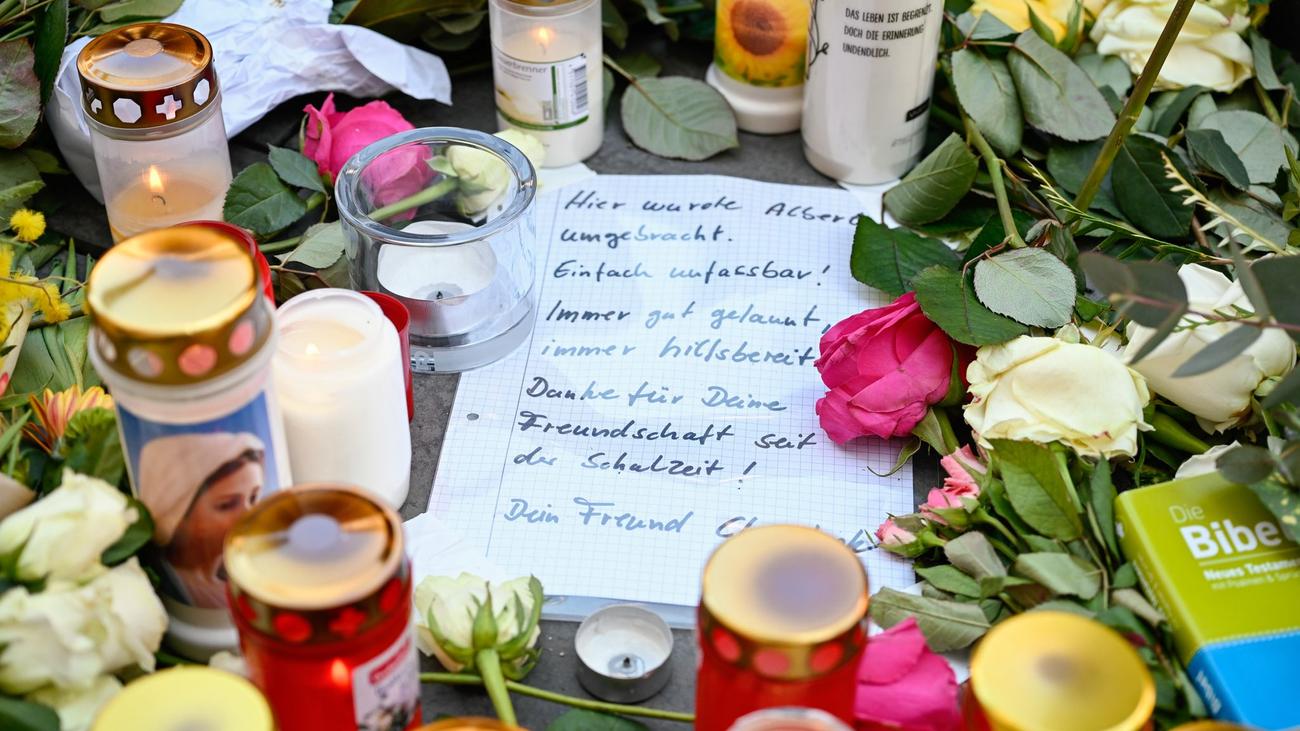 DAS LEBEN IST BEGRENZT,
DOCH DIE ERINNERUNG
UNENDLICH.
Hier wurde Albert
umgebracht.
Einfach unfassbar!
Immer gut gelaunt,
immer hilfsbereit,
Danke für Deine
Freundschaft seit
der Schulzeit!
Dein Freund
Die
Bibe
Neues Testament